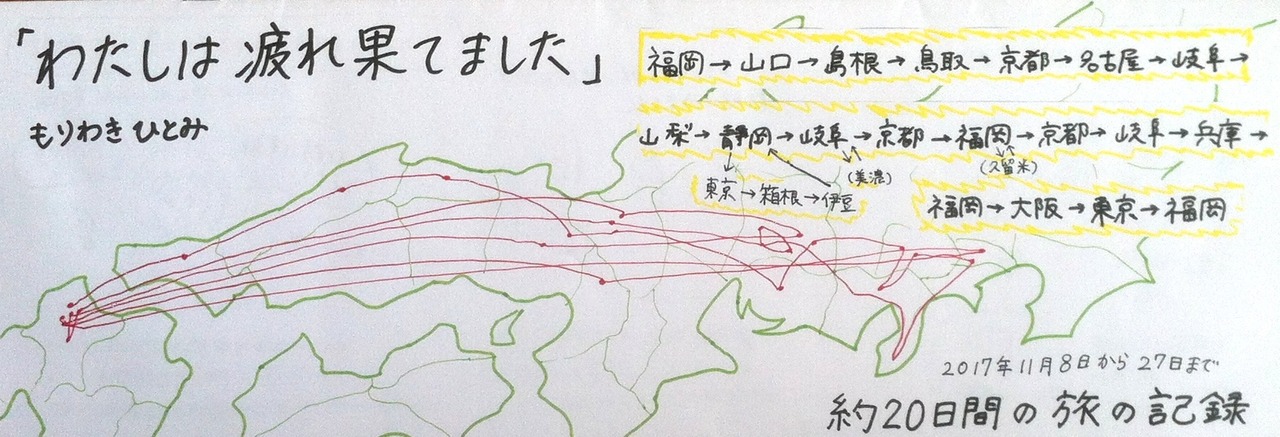 「わたしは疲れ果てました」
もりわきひとみ
福岡→山口→島根→鳥取→京都→名古屋→岐阜→
山梨→静岡→岐阜→京都→福岡→京都→岐阜→兵庫→
(美濃)
(久留米)
東京→箱根→伊豆
福岡→大阪→東京→福岡
2017年11月8日から27日まで
約20日間の旅の記録